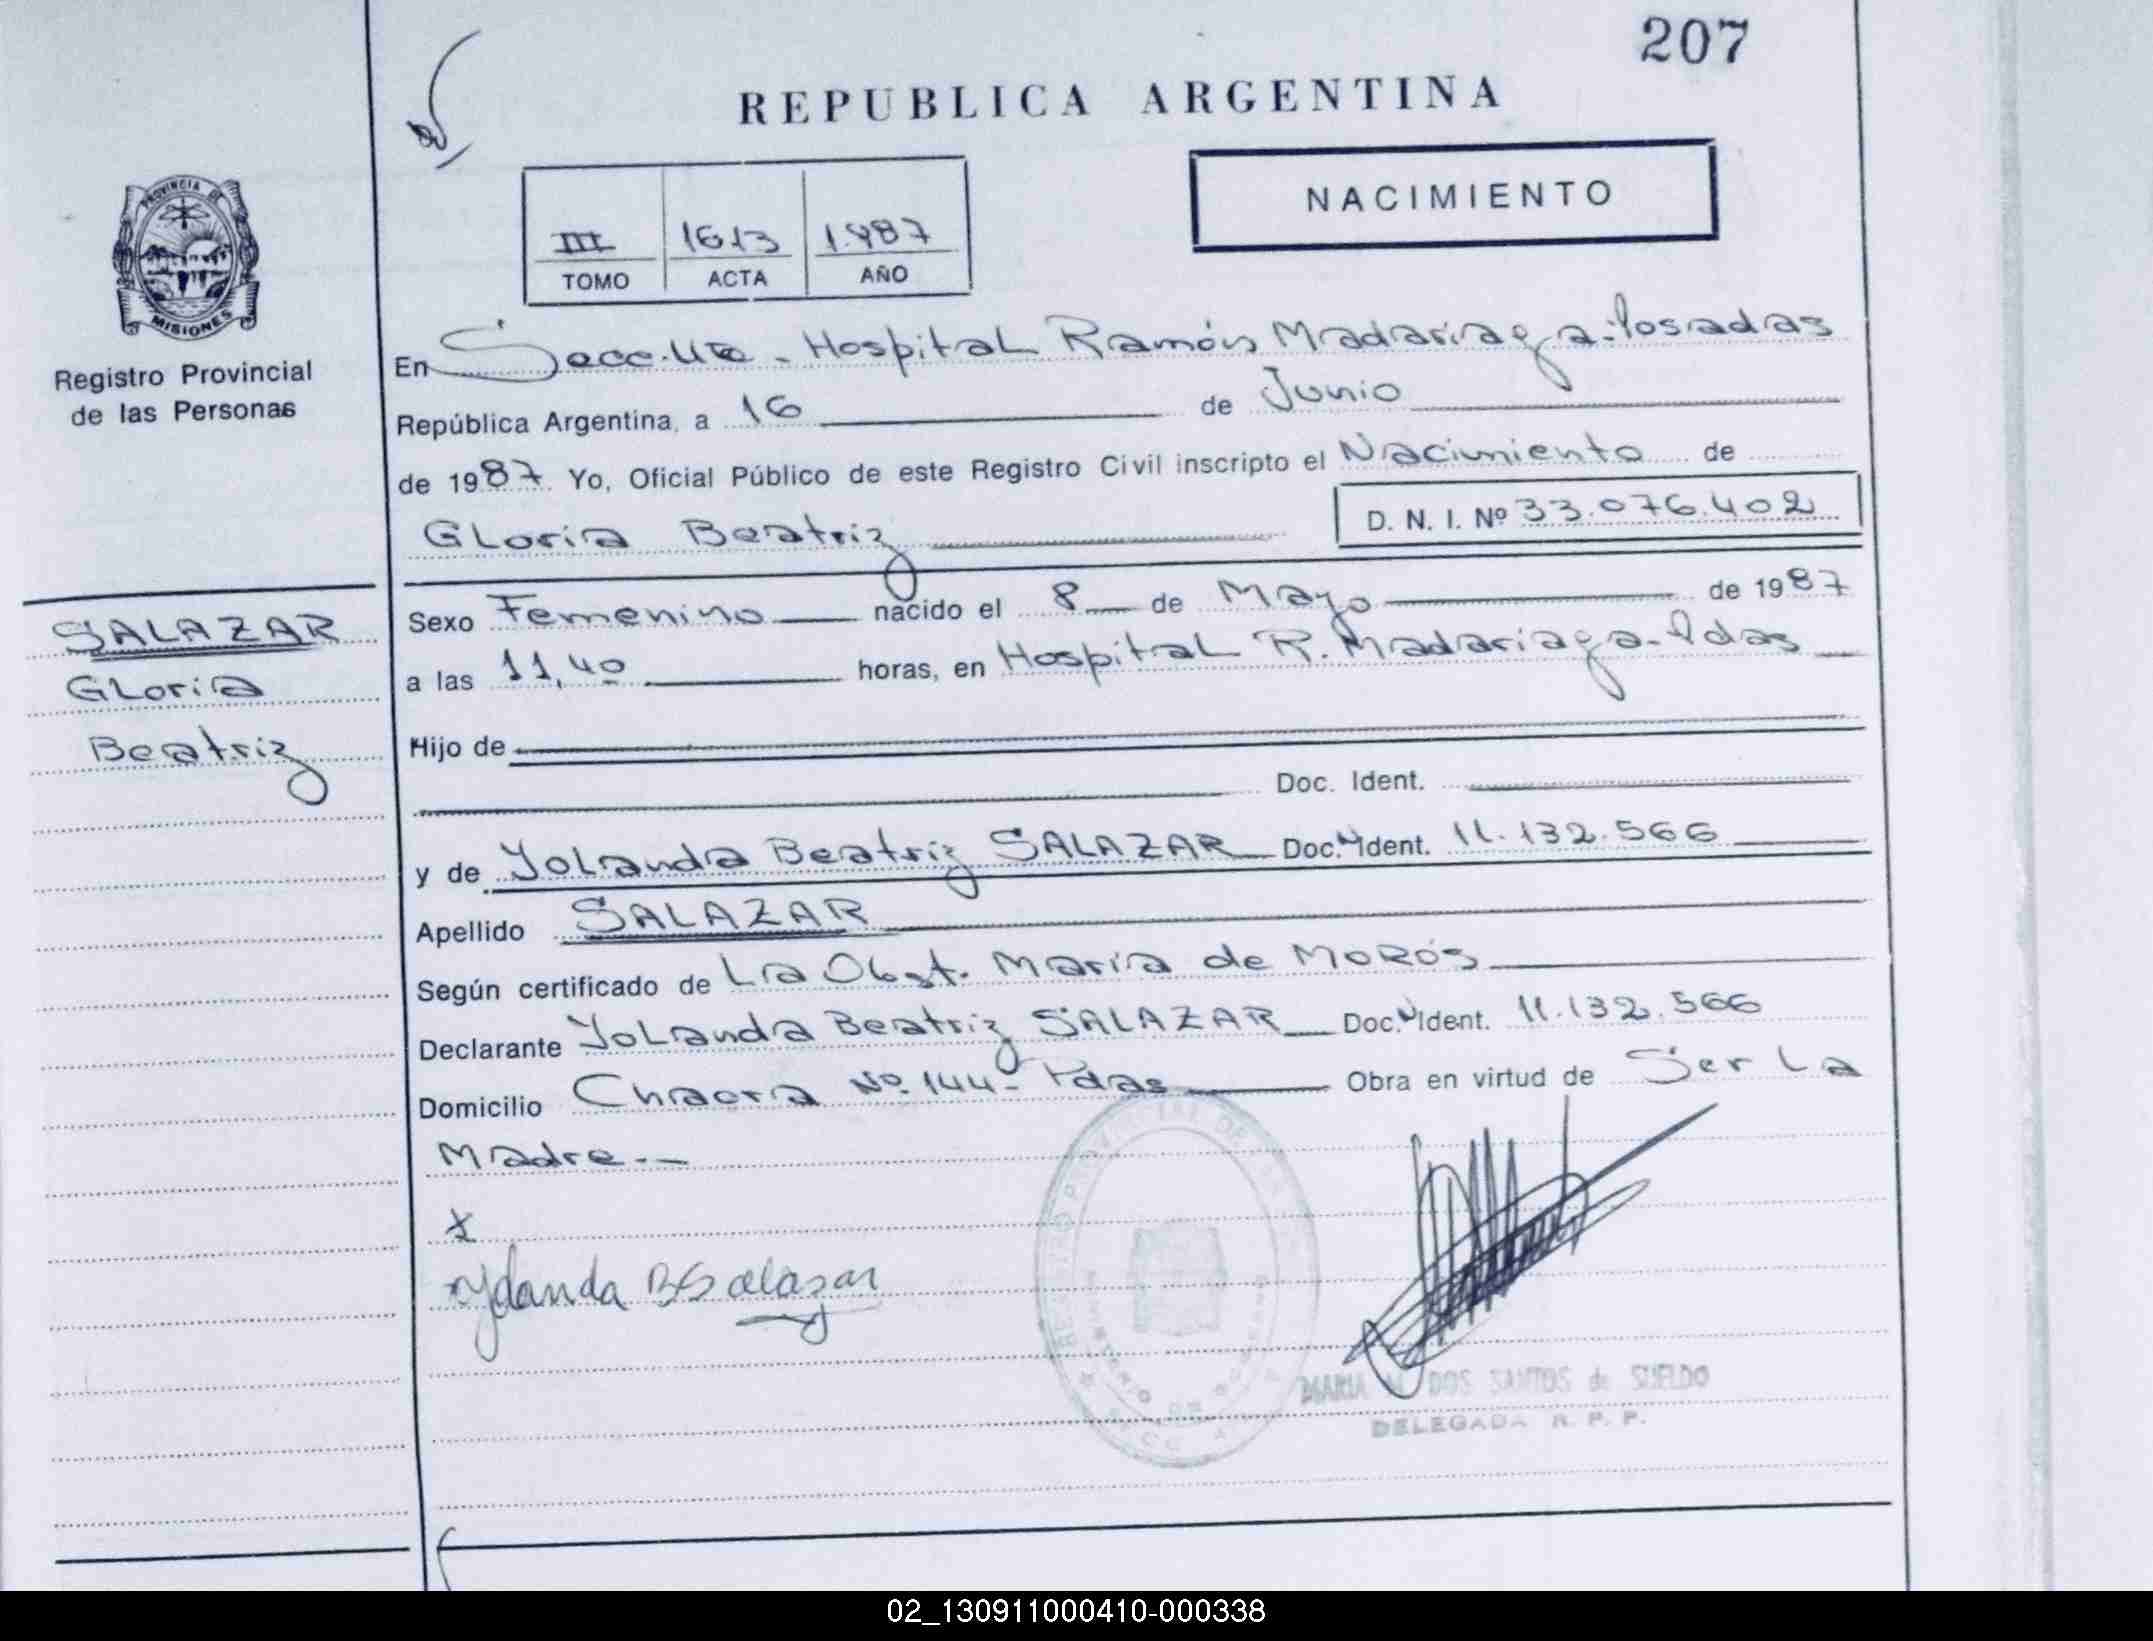 207
REPUBLICA ARGENTINA
NACIMIENTO
III 1613 1.987
TOMO ACTA AÑO
PROVINCIA DE
MISIONES
Registro Provincial
de las Personas
SALAZAR
Gloria
Beatriz
En Secc. 4ta - Hospital Ramón Madariaga - Posadas
República Argentina, a 16 de Junio
de 1987. Yo, Oficial Público de este Registro Civil inscripto el Nacimiento de
Gloria Beatriz D. N. I. Nº 33.076.402
Sexo Femenino nacido el 8 de Mayo de 1987
a las 11,40 horas, en Hospital R. Madariaga - Pdas
Hijo de
Doc. Ident.
y de Yolanda Beatriz SALAZAR Doc. Ident. 11.132.566
Apellido SALAZAR
Según certificado de La Obst. María de MORÓS
Declarante Yolanda Beatriz SALAZAR Doc. Ident. 11.132.566
Domicilio Chacra Nº. 144 - Pdas Obra en virtud de Ser La
Madre.-
x
Yolanda B Salazar
REGISTRO PROVINCIAL DE LAS
MINISTERIO DE GOBIERNO
MARIA M. DOS SANTOS de SUELDO
DELEGADA R. P. P.
02_130911000410-000338